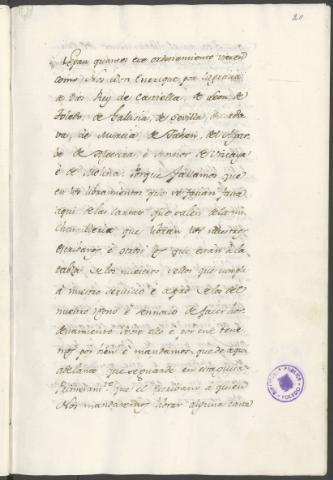 20
Sepan quantos este ordenamiento vieren
como Nos Don Enrique por la gracia
de Dios Rey de Castiella, de Leon, de
Toledo, de Galicia, de Sevilla, de Cordo
va, de Murcia, de Jahen, del Algar
be de Algecira, è Sennor de Vizcaya
è de Molina. Porque fallamos que
en los libramientos que se facian fasta
aqui de las cartas que salen de la nu
Chancilleria que libran los nuestros
Escribanos è otros que estan à la
tabla de los nuestros sellos que cumple
à nuestro servicio è à pro de los del
nuestro regno è Sennorio de facer hor
denamiento sobre ello è por ende tene
mos por bien è mandamos que de aqui
adelante que se guarde en esta guisa
Primeramte. que el Escribano à quien
Nos mandaremos librar alguna carta
BIBLIOTECA PUBLICA
TOLEDO